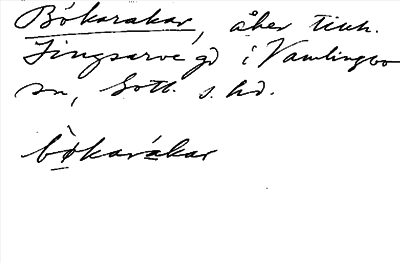 Bókarakar, åker tillh.
Fingsarve gd i Vamlingbo
sn, Gotl. s. hd.
bòkarákar